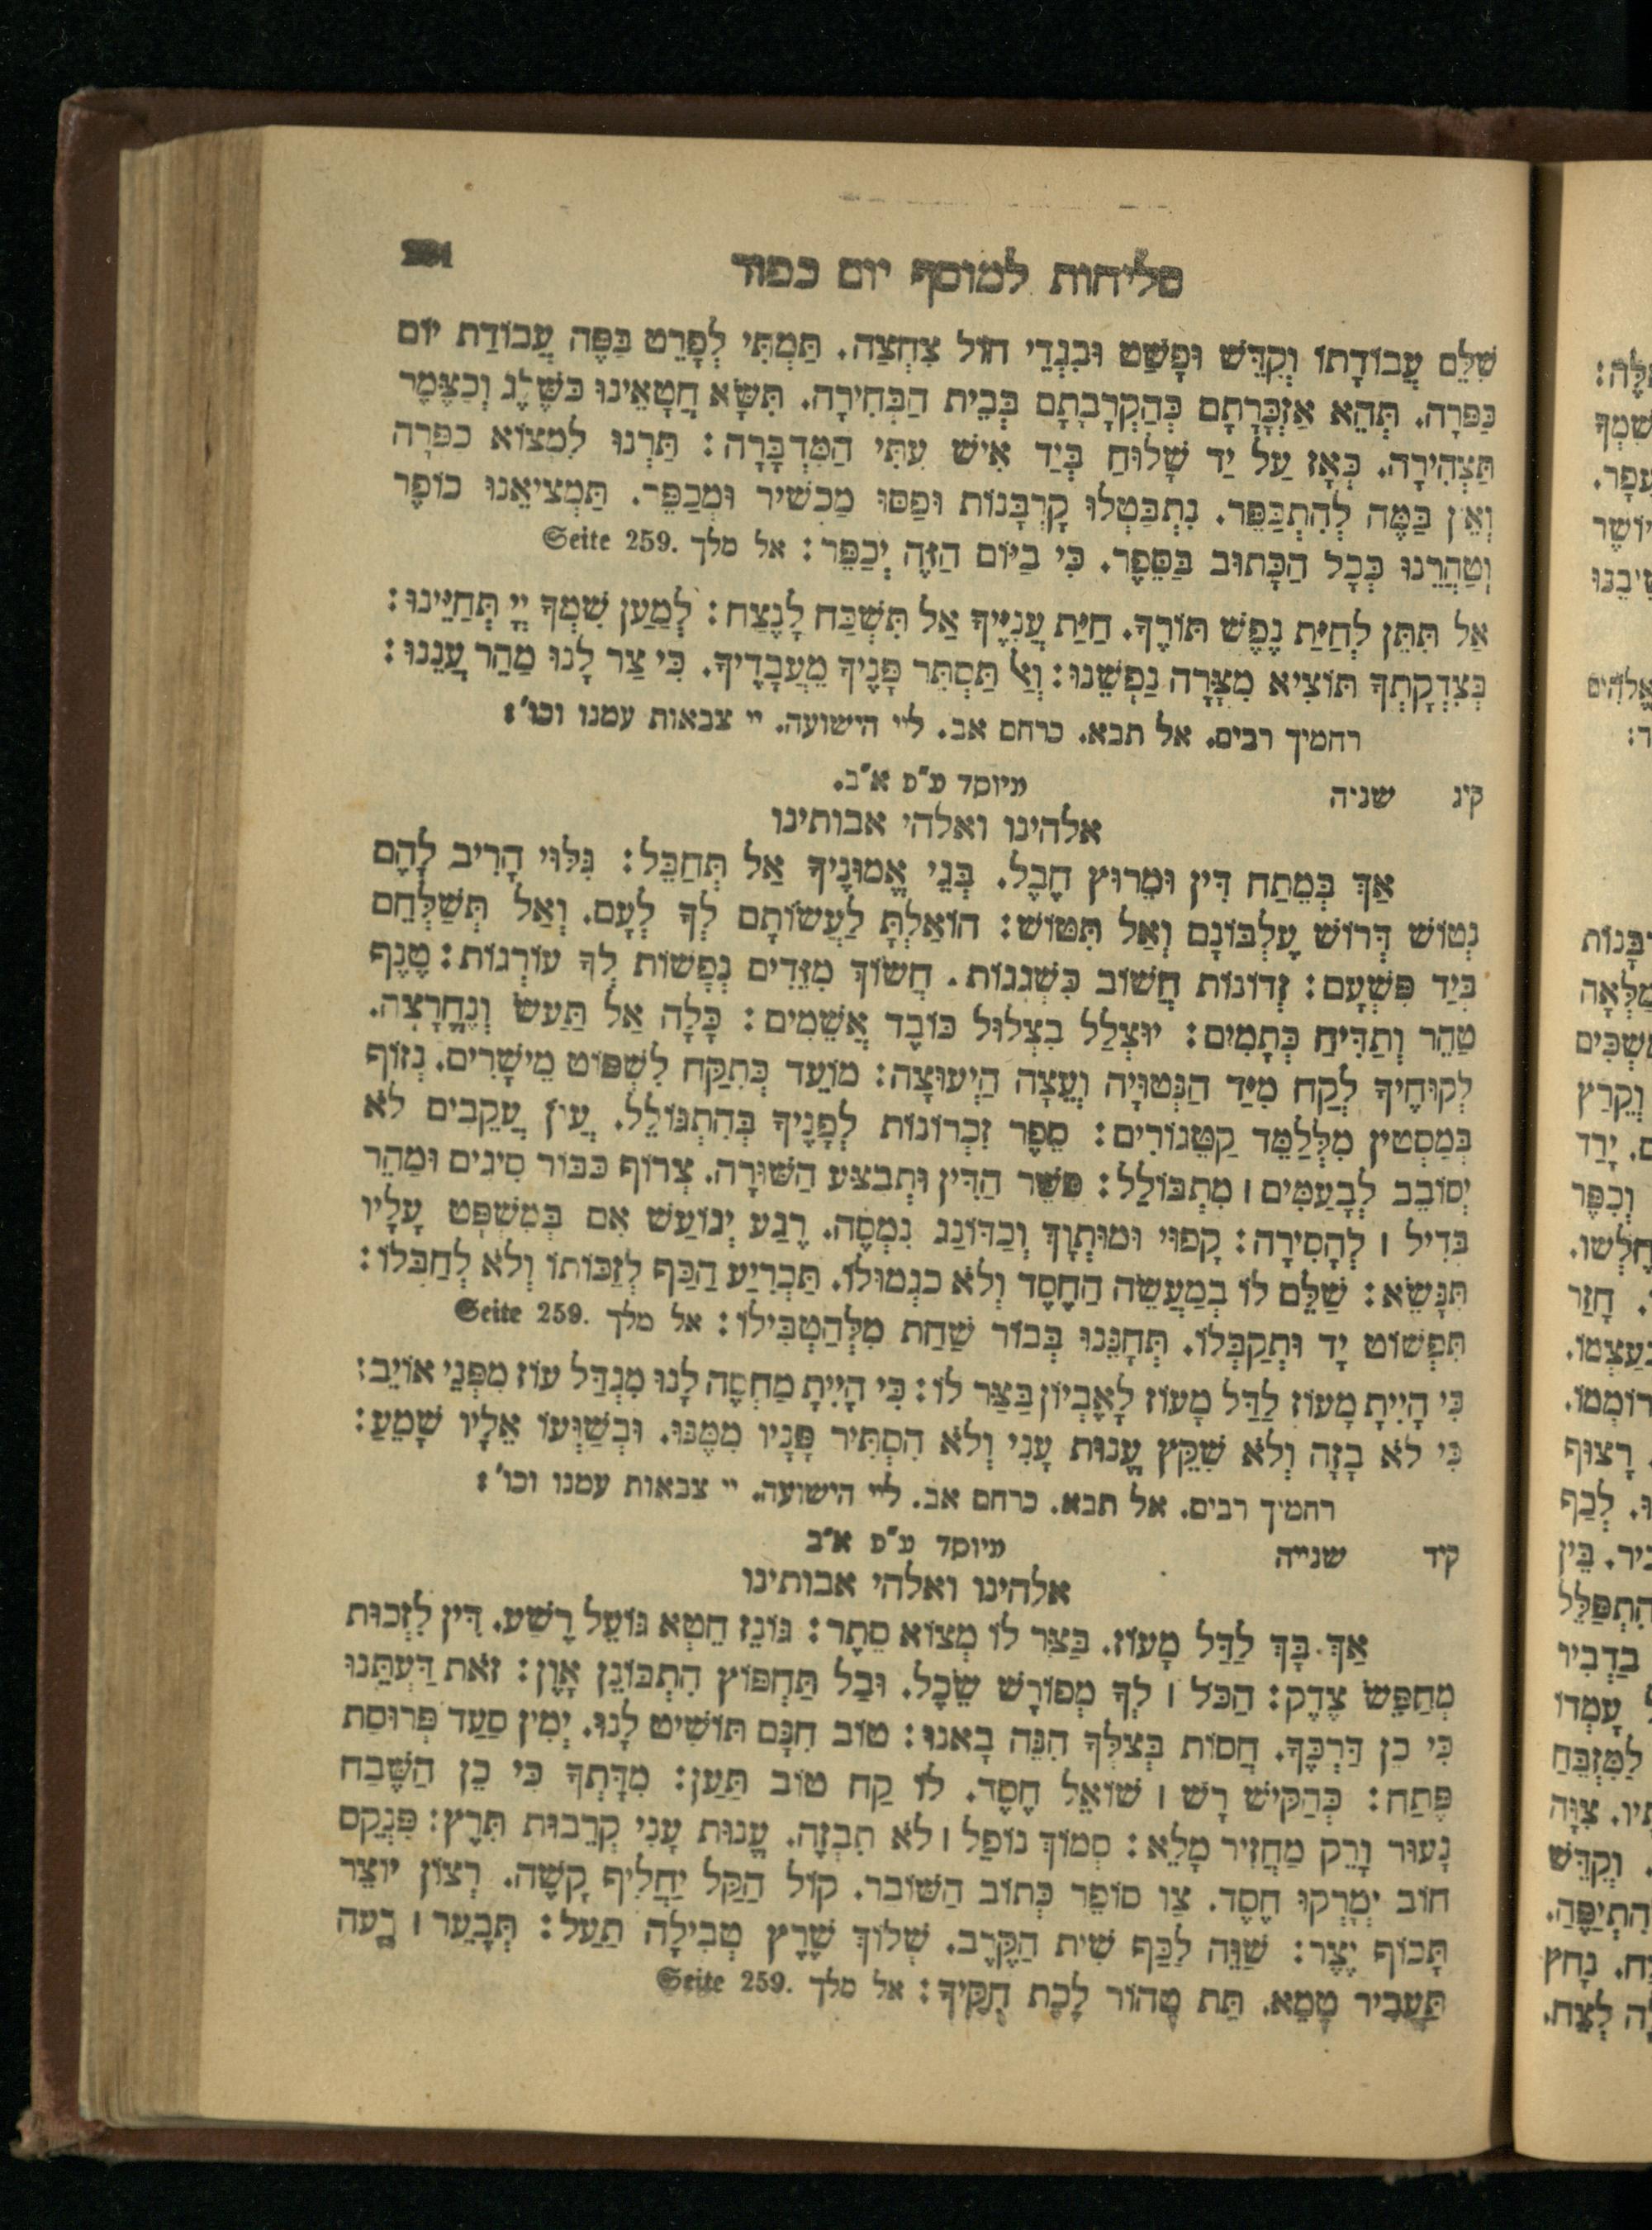 סליחות למוסף יום כפור
שִׁלֵּם עֲבוֹדָתוֹ וְקִדֵּשׁ וּפָשַׁט וּבִגְדֵי חוֹל צִחְצַח. תַּמְתִּי לְפָרֵט בַּפֶּה עֲבוֹדַת יוֹם
כַּפָּרָה. תְּהֵא אַזְכָּרָתָם כְּהַקְרָבָתָם בְּבֵית הַבְּחִירָה. תִּשָּׂא חֲטָאֵינוּ כַּשֶּׁלֶג וְכַצֶּמֶר
תַּצְהִירָה. כְּאָז עַל יַד שָׁלוּחַ בְּיַד אִישׁ עִתִּי הַמִּדְבָּרָה: תַּרְנוּ לִמְצוֹא כַפָּרָה
וְאֵין בַּמֶּה לְהִתְכַּפֵּר. נִתְבַּטְּלוּ קָרְבָּנוֹת וּפַסּוּ מַכְשִׁיר וּמְכַפֵּר. תַּמְצִיאֵנוּ כוֹפֶר
וְטַהֲרֵנוּ כְּכָל הַכָּתוּב בַּסֵּפֶר. כִּי בַיּוֹם הַזֶּה יְכַפֵּר: אל מלך Seite 259.
אַל תִּתֵּן לְחַיַּת נֶפֶשׁ תּוֹרֶךָ. חַיַּת עֲנִיֶּיךָ אַל תִּשְׁכַּח לָנֶצַח: לְמַעַן שִׁמְךָ יְיָ תְּחַיֵּינוּ:
בְּצִדְקָתְךָ תּוֹצִיא מִצָּרָה נַפְשֵׁנוּ: וְאַל תַּסְתֵּר פָּנֶיךָ מֵעֲבָדֶיךָ. כִּי צַר לָנוּ מַהֵר עֲנֵנוּ:
רחמיך רבים. אל תבא. כרחם אב. ליי הישועה. יי צבאות עמנו וכו':
קיג שניה מיוסד ע"פ א"ב.
אלהינו ואלהי אבותינו
אַךְ בְּמֵתַח דִּין וּמֵרוּץ חֶבֶל. בְּנֵי אֱמוּנֶיךָ אַל תְּחַבֵּל: גִּלּוּי הָרִיב לָהֶם
נְטוֹשׁ דְּרוֹשׁ עֶלְבּוֹנָם וְאַל תִּטּוֹשׁ: הוֹאַלְתָּ לַעֲשׂוֹתָם לְךָ לְעָם. וְאַל תְּשַׁלְּחֵם
בְּיַד פִּשְׁעָם: זְדוֹנוֹת חֲשׁוֹב כִּשְׁגָגוֹת. חֲשׂוֹךְ מִזֵּדִים נְפָשׁוֹת לְךָ עוֹרְגוֹת: טֶנֶף
טַהֵר וְתַדִּיחַ כְּתָמִים: יוּצְלַל בִּצְלוּל כּוֹבֶד אֲשֵׁמִים: כָּלָה אַל תַּעַשׂ וְנֶחֱרָצָה.
לְקוּחֶיךָ לְקַח מִיַּד הַנְּטוּיָה וְעֵצָה הַיְעוּצָה: מוֹעֵד כְּתִקַּח לִשְׁפּוֹט מֵישָׁרִים. נְזוֹף
בְּמַסְטִין מִלְּלַמֵּד קַטֵּגוֹרִים: סֵפֶר זִכְרוֹנוֹת לְפָנֶיךָ בְּהִתְגּוֹלֵל. עֲוֹן עֲקֵבִים לֹא
יְסוֹבֵב לְבָעִמִּים ׀ מִתְבּוֹלֵל: פַּשֵּׁר הַדִּין וּתְבַצַּע הַשּׁוּרָה. צְרוֹף כַּבּוֹר סִיגִים וּמַהֵר
בְּדִיל ׀ לְהָסִירָה: קָפוּי וּמוּתָּךְ וְכַדּוֹנַג נִמְסֶה. רֶגַע יִגּוֹעַשׁ אִם בְּמִשְׁפָּט עָלָיו
תִּנָּשֵׂא: שַׁלֵּם לוֹ בְמַעֲשֵׂה הַחֶסֶד וְלֹא כִגְמוּלוֹ. תַּכְרִיעַ הַכַּף לְזַכּוֹתוֹ וְלֹא לְחַבְּלוֹ:
תִּפְשׁוֹט יָד וּתְקַבְּלוֹ. תְּחָנֵּנוּ בְּבוֹר שַׁחַת מִלְּהַטְבִּילוֹ: אל מלך Seite 259.
כִּי הָיִיתָ מָעוֹז לַדַּל מָעוֹז לָאֶבְיוֹן בַּצַּר לוֹ: כִּי הָיִיתָ מַחְסֶה לָנוּ מִגְדַּל עוֹז מִפְּנֵי אוֹיֵב:
כִּי לֹא בָזָה וְלֹא שִׁקֵּץ עֱנוּת עָנִי וְלֹא הִסְתִּיר פָּנָיו מִמֶּנּוּ. וּבְשַׁוְּעוֹ אֵלָיו שָׁמֵעַ:
רחמיך רבים. אל תבא. כרחם אב. ליי הישועה. יי צבאות עמנו וכו':
קיד שנייה מיוסד ע"פ א"ב
אלהינו ואלהי אבותינו
אַךְ בָּךְ לַדַּל מָעוֹז. בַּצַּר לוֹ מְצוֹא סֵתֶר: גּוֹנֵז חֵטְא גּוֹעֵל רֶשַׁע. דִּין לִזְכּוּת
מְחַפֵּשׂ צֶדֶק: הַכֹּל ׀ לְךָ מְפוֹרָשׁ שֵׂכֶל. וּבַל תַּחְפּוֹץ הִתְבּוֹנֵן אָוֶן: זֹאת דַּעְתֵּנוּ
כִּי כֵן דַּרְכֶּךָ. חֲסוֹת בְּצִלְּךָ הִנֵּה בָאנוּ: טוֹב חִנָּם תּוֹשִׁיט לָנוּ. יְמִין סַעַד פְּרוּסַת
פֶּתַח: כְּהַקִּישׁ רָשׁ ׀ שׁוֹאֵל חֶסֶד. לוֹ קַח טוֹב תַּעַן: מִדָּתְךָ כִּי כֵן הַשֶּׁבַח
נָעוּר וָרֵק מַחֲזִיר מָלֵא: סְמוֹךְ נוֹפֵל ׀ לֹא תִבְזֶה. עֱנוּת עָנִי קְרֵבוּת תִּרֶץ: פִּנְקַס
חוֹב יְמָרְקוּ חֶסֶד. צַו סוֹפֵר כְּתוֹב הַשּׁוֹבֵר. קוֹל הַקַּל יַחֲלִיף קָשֶׁה. רְצוֹן יוֹצֵר
תָּכוֹף יֵצֶר: שַׁוֵּה לַכַּף שִׁית הַקֶּרֶב. שְׁלוֹךְ שֶׁרֶץ טְבִילָה תַעַל: תְּבַעֵר ׀
תַּעֲבִיר טָמֵא. תֵּת טָהוֹר לָכֶת חֻקֶּיךָ: אל מלך Seite 259.